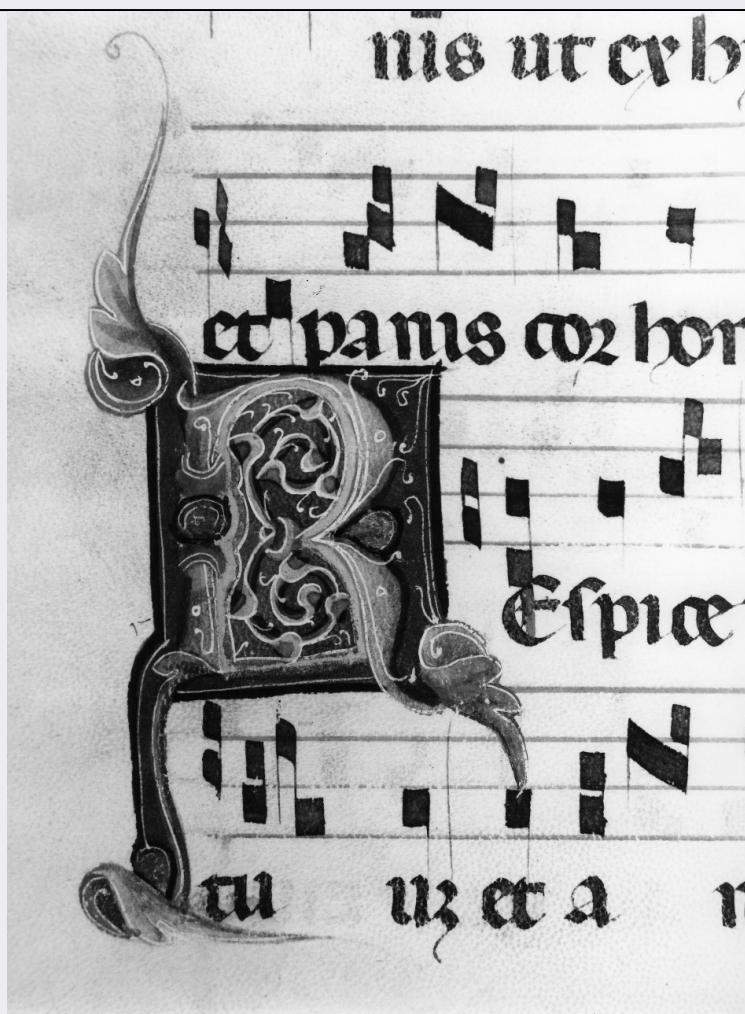 nis ut ex hy
et panis cor hom
REspice
tu uz et a n